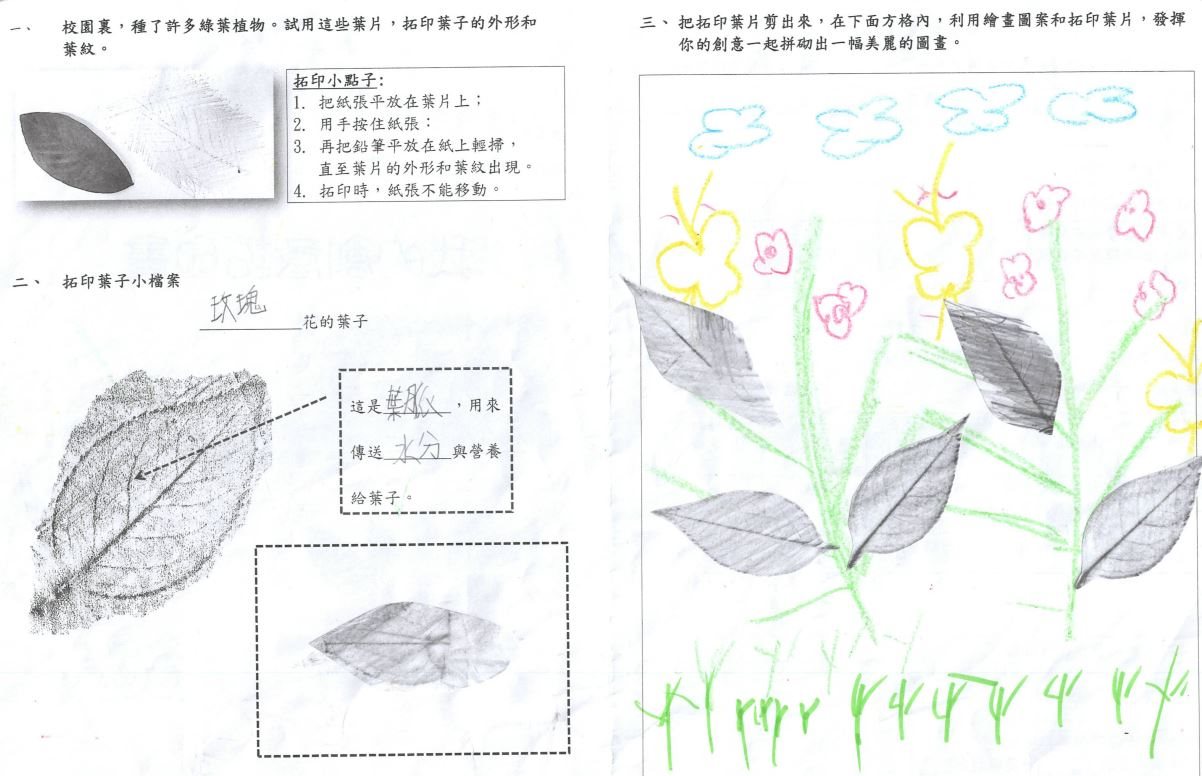 一、 校園裏，種了許多綠葉植物。試用這些葉片，拓印葉子的外形和
葉紋。
拓印小點子：
1. 把紙張平放在葉片上；
2. 用手按住紙張：
3. 再把鉛筆平放在紙上輕掃，
直至葉片的外形和葉紋出現。
4. 拓印時，紙張不能移動。
二、 拓印葉子小檔案
玫瑰花的葉子
這是葉脈，用來
傳送水分與營養
給葉子。
三、把拓印葉片剪出來，在下面方格內，利用繪畫圖案和拓印葉片，發揮
你的創意一起拼砌出一幅美麗的圖畫。